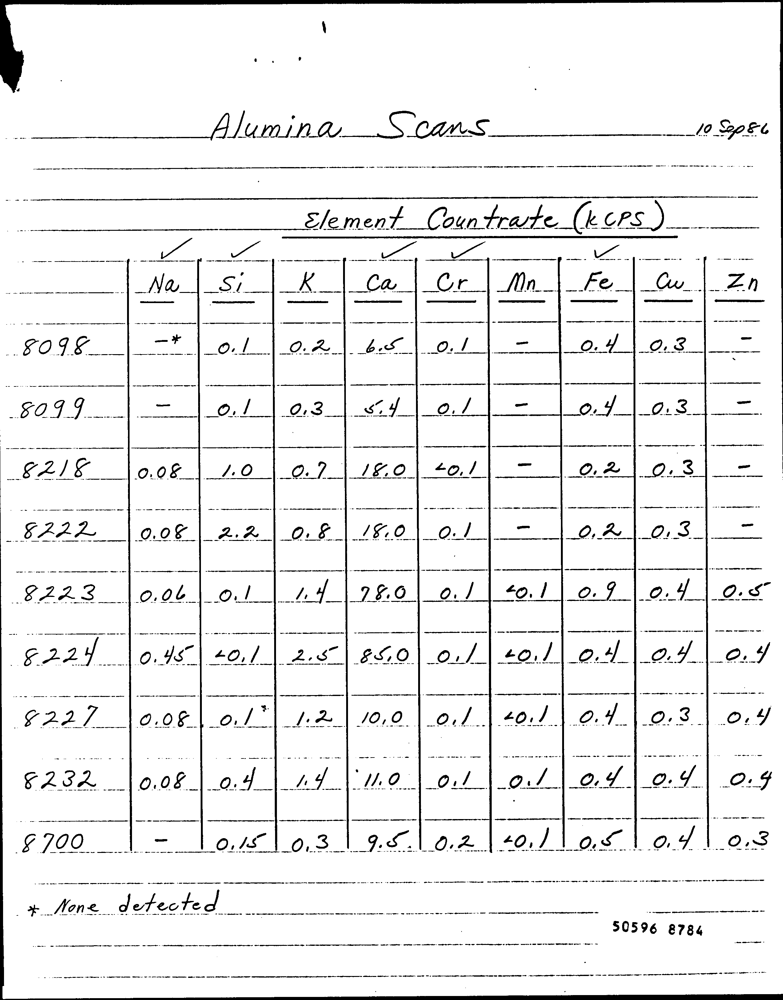 Alumina Scans 10 Sep 86
Element Countrate (kCPS)
✓ ✓ ✓ ✓ ✓
Na Si K Ca Cr Mn Fe Cu Zn
8098 -* 0.1 0.2 6.5 0.1 - 0.4 0.3 -
8099 - 0.1 0.3 5.4 0.1 - 0.4 0.3 -
8218 0.08 1.0 0.7 18.0 <0.1 - 0.2 0.3 -
8222 0.08 2.2 0.8 18.0 0.1 - 0.2 0.3 -
8223 0.06 0.1 1.4 78.0 0.1 <0.1 0.9 0.4 0.5
8224 0.45 <0.1 2.5 85.0 0.1 <0.1 0.4 0.4 0.4
8227 0.08 0.1 1.2 10.0 0.1 <0.1 0.4 0.3 0.4
8232 0.08 0.4 1.4 11.0 0.1 0.1 0.4 0.4 0.4
8700 - 0.15 0.3 9.5 0.2 <0.1 0.5 0.4 0.3
* None detected
50596 8784